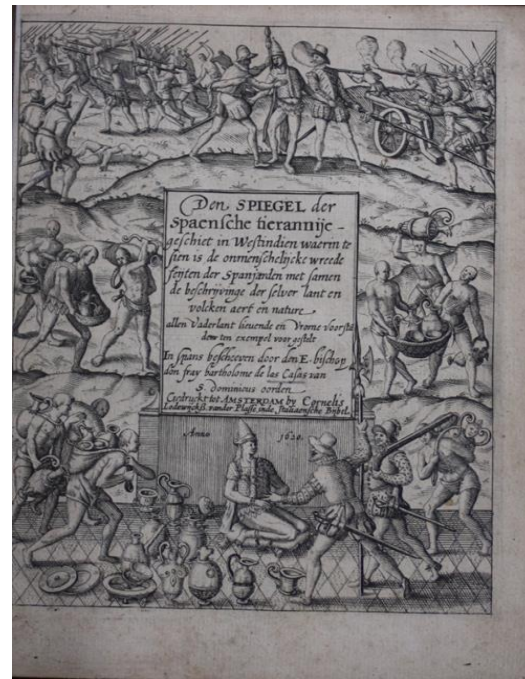 Den SPIEGEL der
Spaensche tierannije-
geschiet in Westindien waerin te
sien is de onmenschelijcke wreede
feijten der Spanjarden met samen
de beschrijvinge der selver lant en
volcken aert en nature
allen Vaderlant lievende en Vrome voorstā
ders ten exempel voorgestelt
In spans beschreven door den E. bischop
don fray bartholome de las Casas van
S. dominicus oorden
Gedruckt tot AMSTERDAM by Cornelis
Lodewijcksz. vander Plasse inde Italiaensche Bijbel.
Anno 1620.